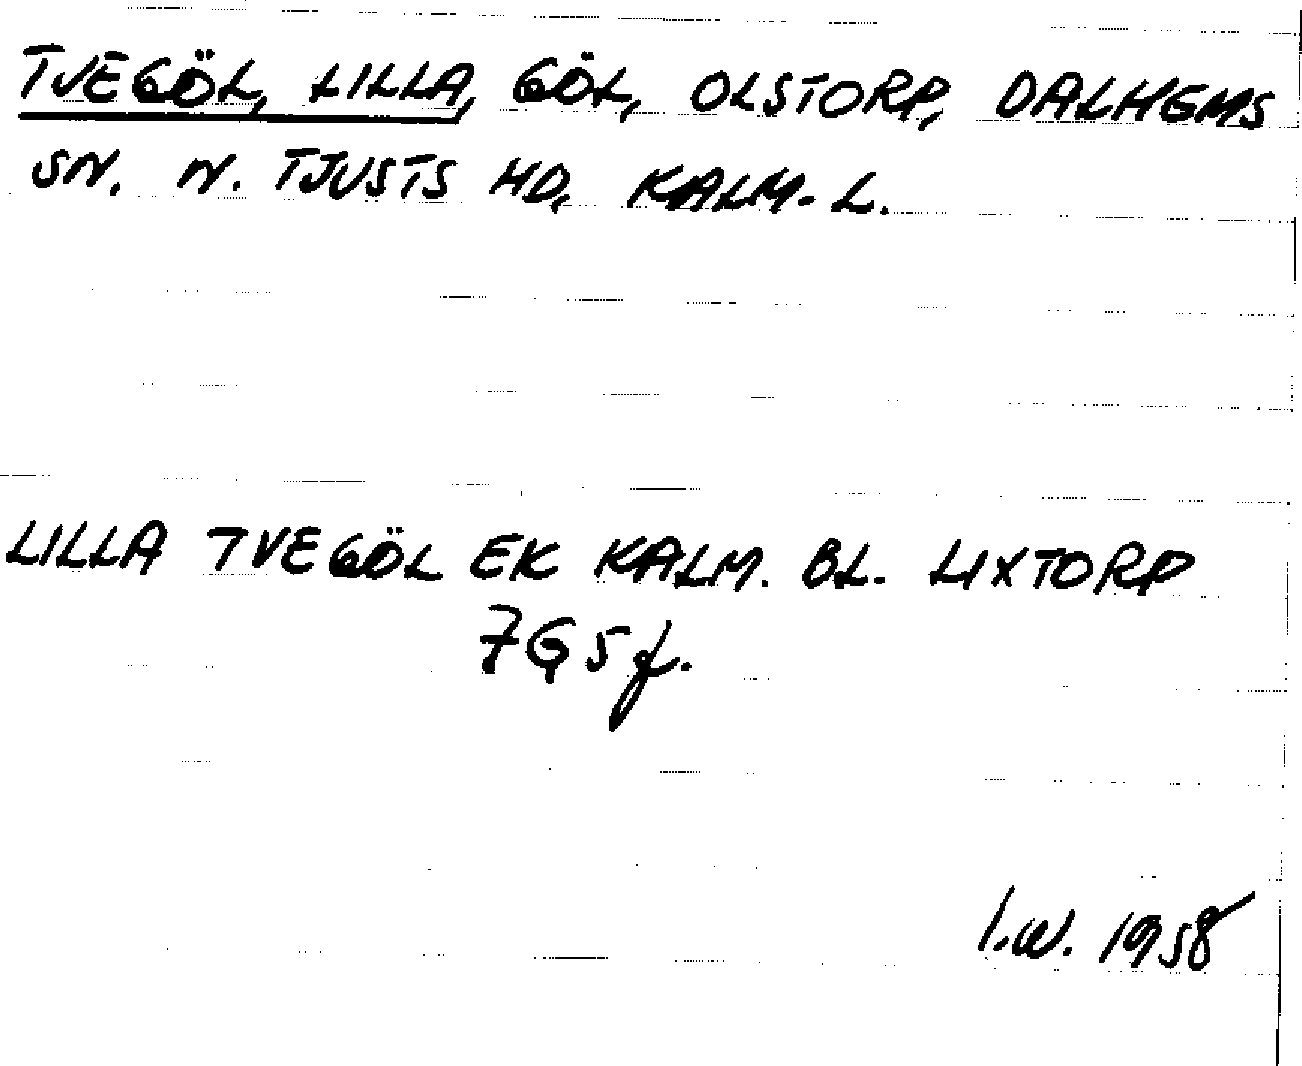 TVEGÖL, LILLA, GÖL, OLSTORP, DALHEMS
SN. N. TJUSTS HD, KALM. L.
LILLA TVEGÖL EK KALM. BL. LIXTORP
7G5f.
I.W. 1958